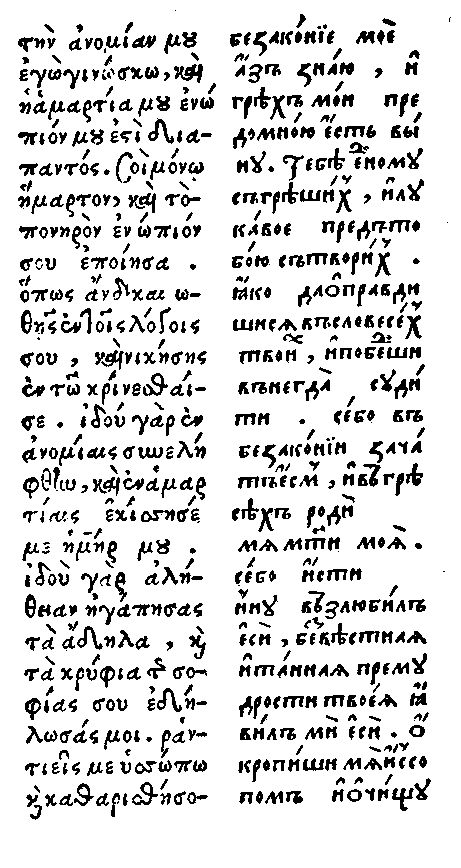 τὴν ἀνομίαν μȣ
ἐγὼγινώσκω, καὶ
ἡἁμαρτία μȣ ἐνώ
πιόν μȣ ἐςὶ δια-
παντός. Σοὶ μόνῳ
ἥμαρτον, καὶ τὸ-
πονηρὸν ἐνώπιόν
σου ἐποίησα .
ὅπως ἂν δικαιω-
θῇς ἐν τοῖς λόγοις
σου , καὶ νικήσῃς
ἐν τῷ κρίνεσθαί-
σε . ἰδοὺ γὰρ ἐν
ἀνομίαις συνελή
φθην, καὶ ἐν ἁμαρ
τίαις ἐκίσσησέ
με ἡ μήρ μȣ .
ἰδοὺ γὰρ ἀλή-
θειαν ἠγάπησας
τὰ ἄδηλα , κ̀
τὰ κρύφια τ͂ σο-
φίας σου ἐδή-
λωσάς μοι . ῥαν-
τιεῖς με ὑσσώπω
κ̀ καθαρισθήσο-
беꙁако́нїе моѐ
а҆́ꙁъ ꙁна́ю , и҆
грѣ́хъ мо́и пре
домно́ю є҆́сть вы́
нꙋ . Тебѣ̀ є҆ди́номꙋ
съгрѣши́х , и҆лꙋ
ка́вое предъто
бо́ю сътвори́х .
ꙗ҆́ко дꙋ̀ѡправди
шисѧ въсловесе́х
твои́х , и҆побѣди́ши
вънегда̀ сꙋди́
ти . се́бо въ
беꙁако́нїи ꙁача́
тъ є҆́смь , и҆въгрѣ
сѣ́хъ родѝ
мѧ мт҃и моѧ̀ .
се́бо и҆́сти
и҆́нꙋ въꙁлюби́лъ
є҆сѝ , беꙁвѣ́стнаѧ
и҆та́йнаѧ премꙋ́
дрости твоеѧ̀ ꙗ҆
ви́лъ мѝ є҆сѝ . Ѻ҆
кропи́ши мѧ̀ и҆ссо
помъ и҆ѡ҆чи́щꙋ